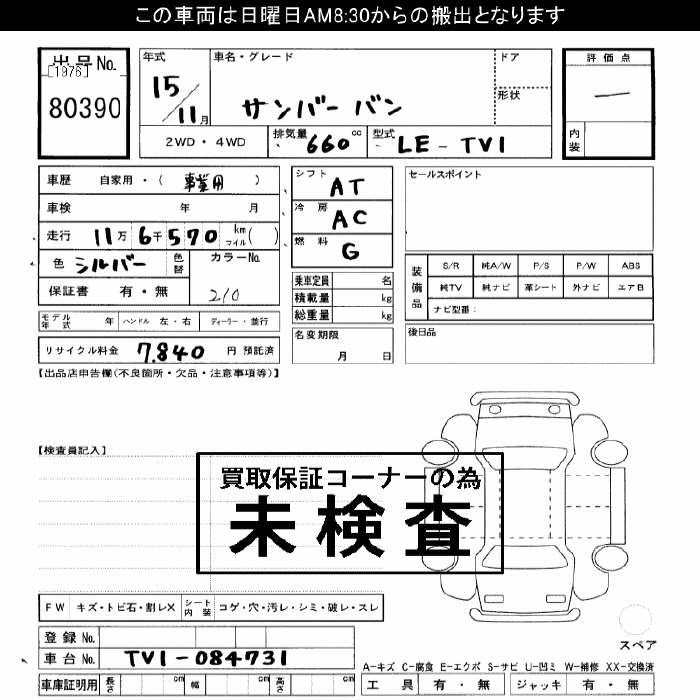 この車両は日曜日AM8:30からの搬出となります
出品No.
[1976]
80390
年式 15/11月
車名・グレード サンバーバン
ドア
形状
評価点 —
内装
2WD・4WD 排気量 660cc 型式 LE-TV1
車歴 自家用・(事業用)
車検 年 月
走行 11万6千570 km マイル( )
色 シルバー 色替 カラーNo. 210
保証書 有・無
シフト AT
冷房 AC
燃料 G
乗車定員 名
積載量 kg
総重量 kg
セールスポイント
装備品 S/R 純A/W P/S P/W ABS
純TV 純ナビ 革シート 外ナビ エアB
ナビ型番:
モデル年式 年 ハンドル 左・右 ディーラー・並行
名変期限 月 日
後日品
リサイクル料金 7,840 円 預託済
【出品店申告欄(不良箇所・欠品・注意事項等)】
【検査員記入】
買取保証コーナーの為
未検査
FW キズ・トビ石・割レX シート内装 コゲ・穴・汚レ・シミ・破レ・スレ
登録No.
車台No. TV1-084731
スペア
A-キズ C-腐食 E-エクボ S-サビ U-凹ミ W-補修 XX-交換済
車庫証明用 長さ cm 幅 cm 高さ cm
工具 有・無 ジャッキ 有・無